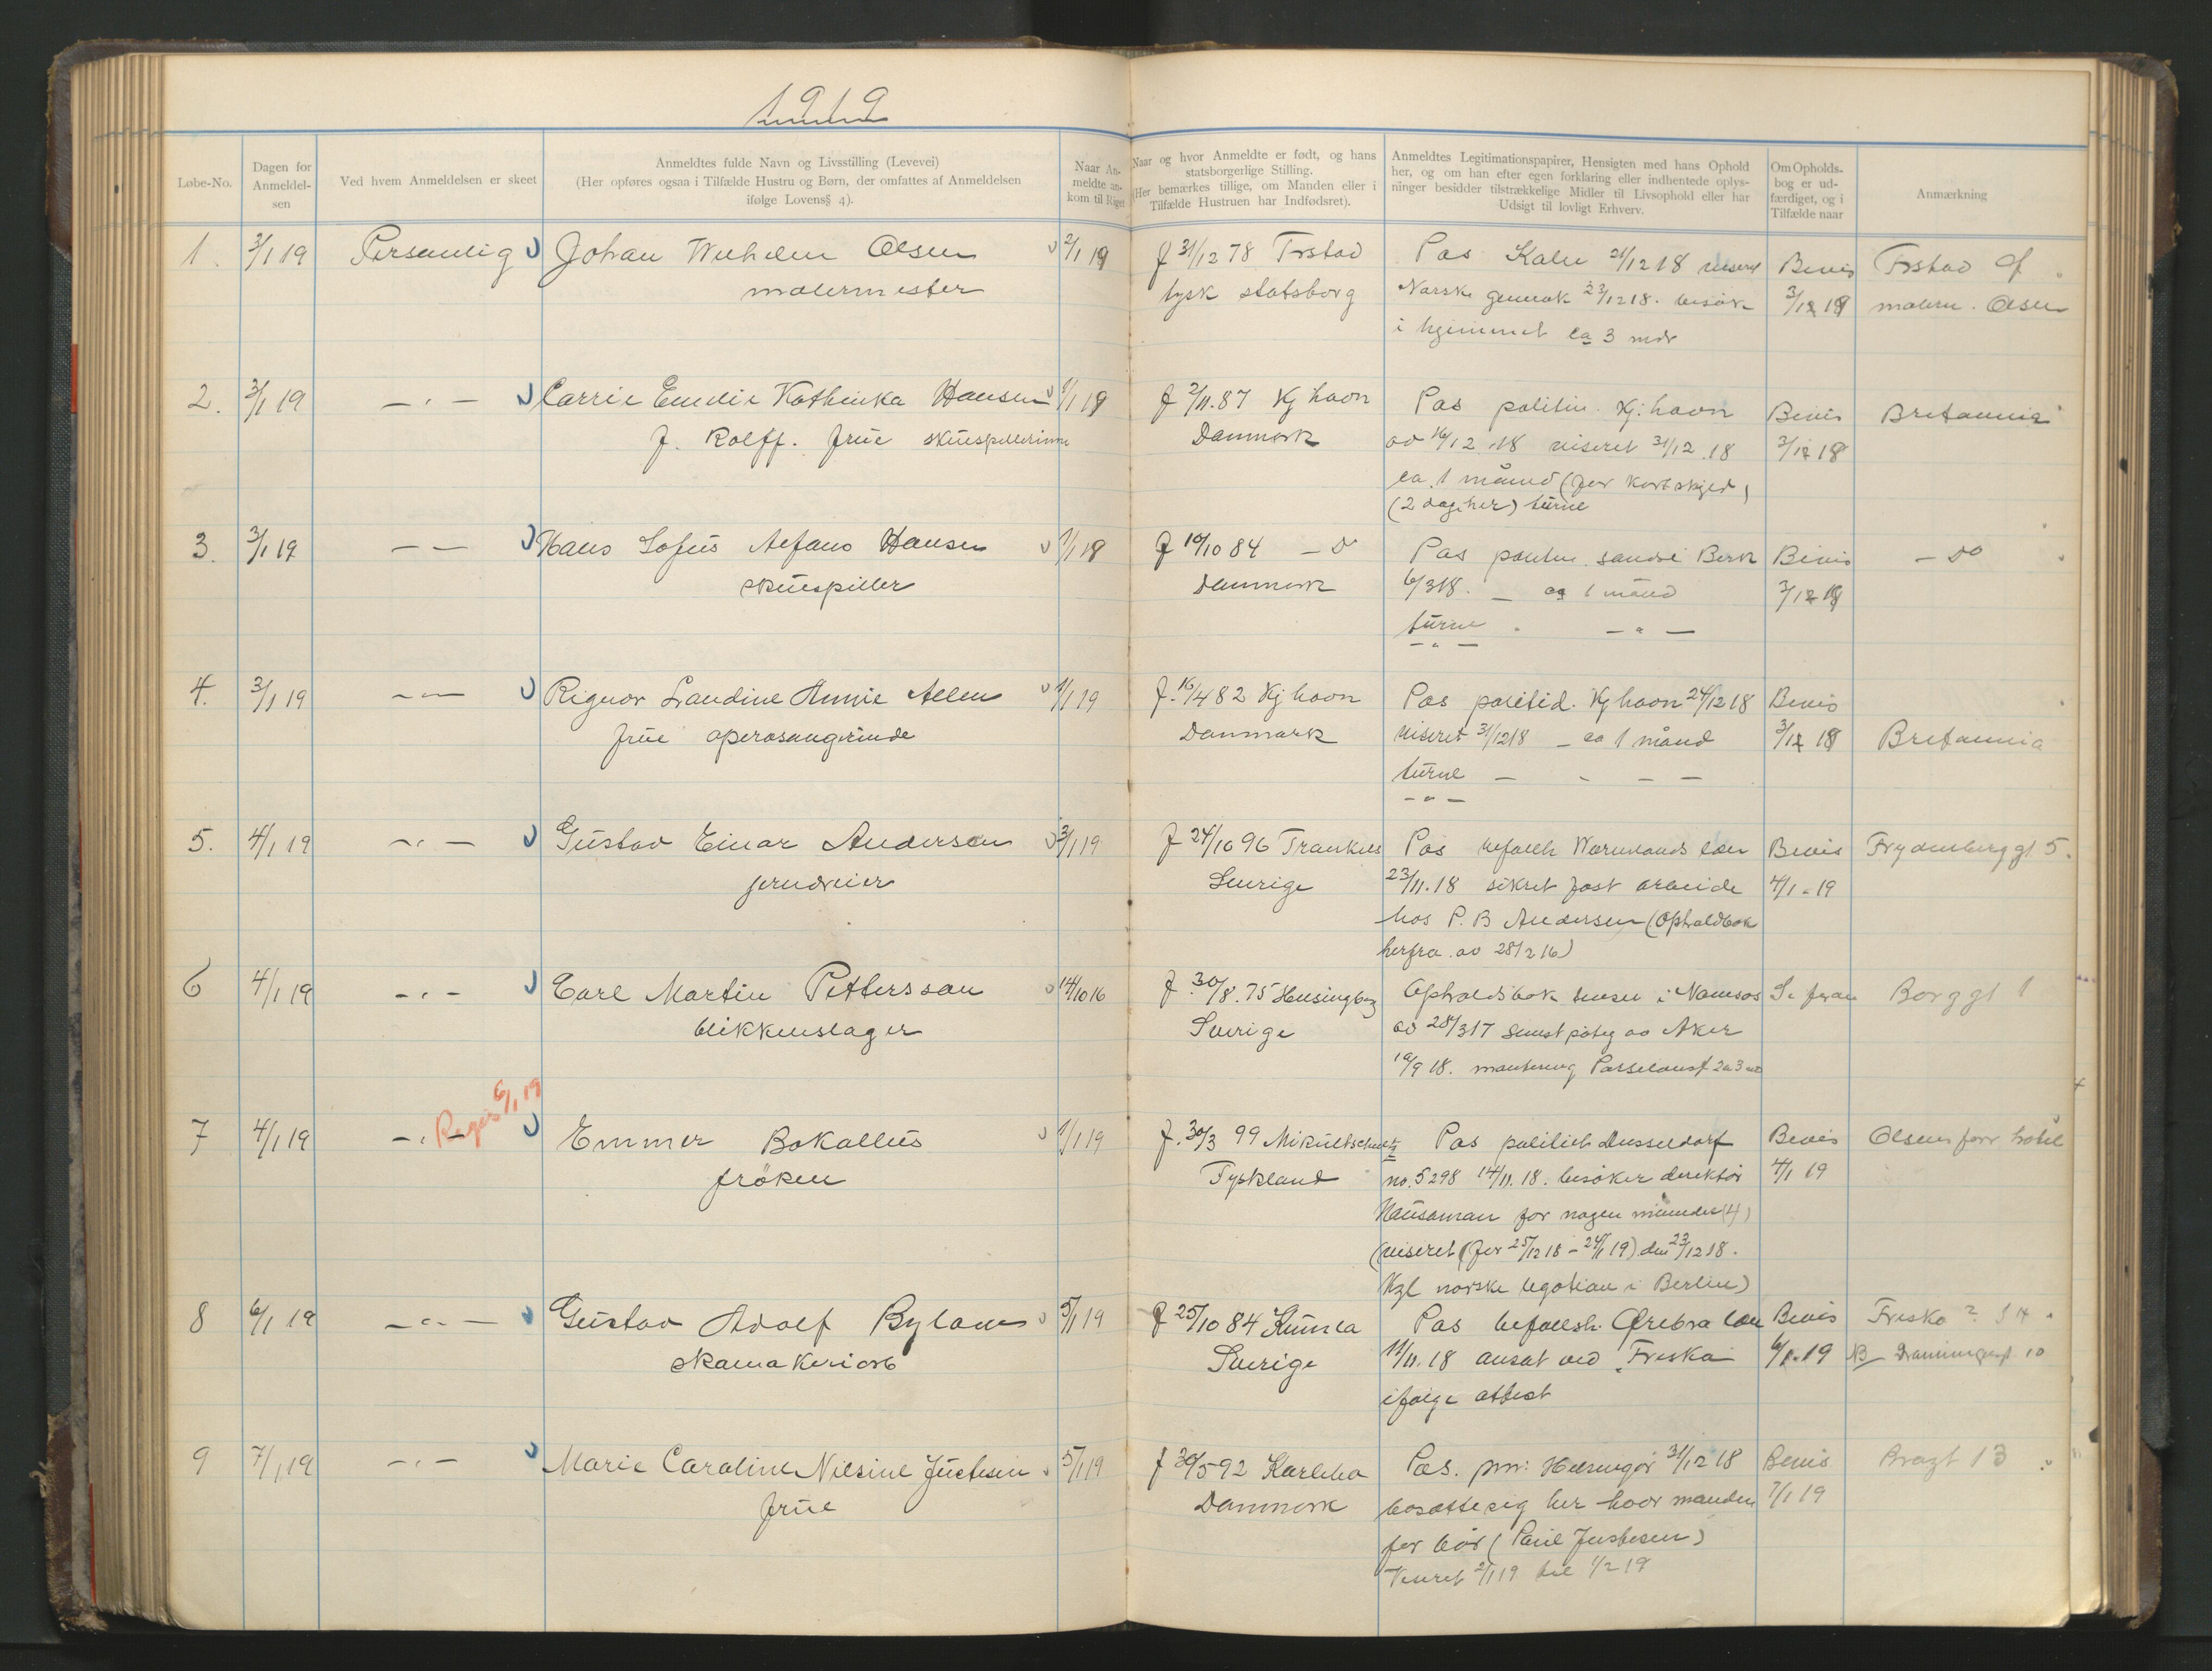 1919
Løbe-No.
Dagen for Anmeldel-sen
Ved hvem Anmeldelsen er skeet
Anmeldtes fulde Navn og Livsstilling (Levevei)
(Her opføres ogsaa i Tilfælde Hustru og Børn, der omfattes af Anmeldelsen
ifølge Lovens § 4).
Naar An-
meldte an-
kom til Riget
Naar og hvor Anmeldte er født, og hans
statsborgerlige Stilling.
(Her bemærkes tillige, om Manden eller i
Tilfælde Hustruen har Indfødsret).
Anmeldtes Legitimationspapirer, Hensigten med hans Ophold
her, og om han efter egen forklaring eller indhentede oplys-
ninger besidder tilstrækkelige Midler til Livsophold eller har
Udsigt til lovligt Erhverv.
Om Opholds-
bog er ud-
færdiget, og i
Tilfælde naar
Anmærkning
1. 3/1 19 Personlig Johan Wilhelm Olsen 2/1 19 f 31/12 78 Trstad Pas 21/12 18 viseret Bevis Trstad
malermester tysk statsborg Norske generalk 23/12 18. besøk 3/1 19 malerm. Olsen
i hjemmet ca 3 mdr
2. 3/1 19 - " - Carrie Emilie Kathinka Hansen 1/1 19 f 2/11.87 Kjhavn Pas politim. Kj.havn Bevis Britannia
f. Rolff. frue skuespillerinne Danmark av 16/12.18 viseret 31/12.18 3/1
ca. 1 måned (
(2 dage her) turne
3. 3/1 19 - - Hans Sofus Alfano Hansen 1/1 19 f 10/10 84 - Do Pas politim. Bevis - Do
skuespiller Danmark 6/3 18. - ca 1 månd 3/1
turne - " -
- " -
4. 3/1 19 - - Rignor Landine Annie Allen 1/1 19 f. 16/4 82 Kjhavn Pas politid. Kjhavn 24/12 18 Bevis
frue operasangerinde Danmark viseret 31/12 18 - ca 1 månd 3/1 Britannia
turne - " - -
- " -
5. 4/1 19 - " - Gustav Einar Andersen 3/1 19 f 24/10 96 Trankils Pas befallh Wärmlands län Bevis Frydenberg gt 5.
jerndreier Sverige 23/11.18 sikret fast arbeide 4/1 - 19
hos P. B Andersen (Opholdbok
herfra av 28/2 16)
6 4/1 19 - " - Carl Martin Pettersson 14/10 16 f. 30/8.75 Helsingborg Opholdsbok Namsos Borg gt 1
blikkenslager Sverige av 28/3 17 senst påteg av Aker
19/9 18. montering
Regis 6/1 19
7 4/1 19 - " - Emmer Bokallus 1/1 19 f. 30/3 99 Mikultschutz Pas politiet Dusseldorf Bevis Olsens forr hotel
frøken Tyskland no. 5298 14/11. 18. besøker direktør 4/1 19
Hausaman for nogen måneder (4)
(viseret (for 25/12 18 - 24/1 19) den 23/12 18.
Kgl norske legation i Berlin)
8 6/1 19 - " - Gustav Adolf Bylow 5/1 19 f 25/10 84 Kumla Pas befallsh. Ørebro län Bevis Freska
skomakeriarb Sverige 11/11.18 ansat ved "Freska 6/1.19 Dronningensgt. 10
ifølge attest
9 7/1 19 - " - Marie Caroline Nilsine Justesen 5/1 19 f 30/5 92 Karlebo Pas. pm: Helsingør 31/12 18 Bevis Bragt 13
frue Danmark bosætte sig her hvor manden 7/1 19
før bor (Paul Justesen)
Viseret 2/1 19 til 1/2 19